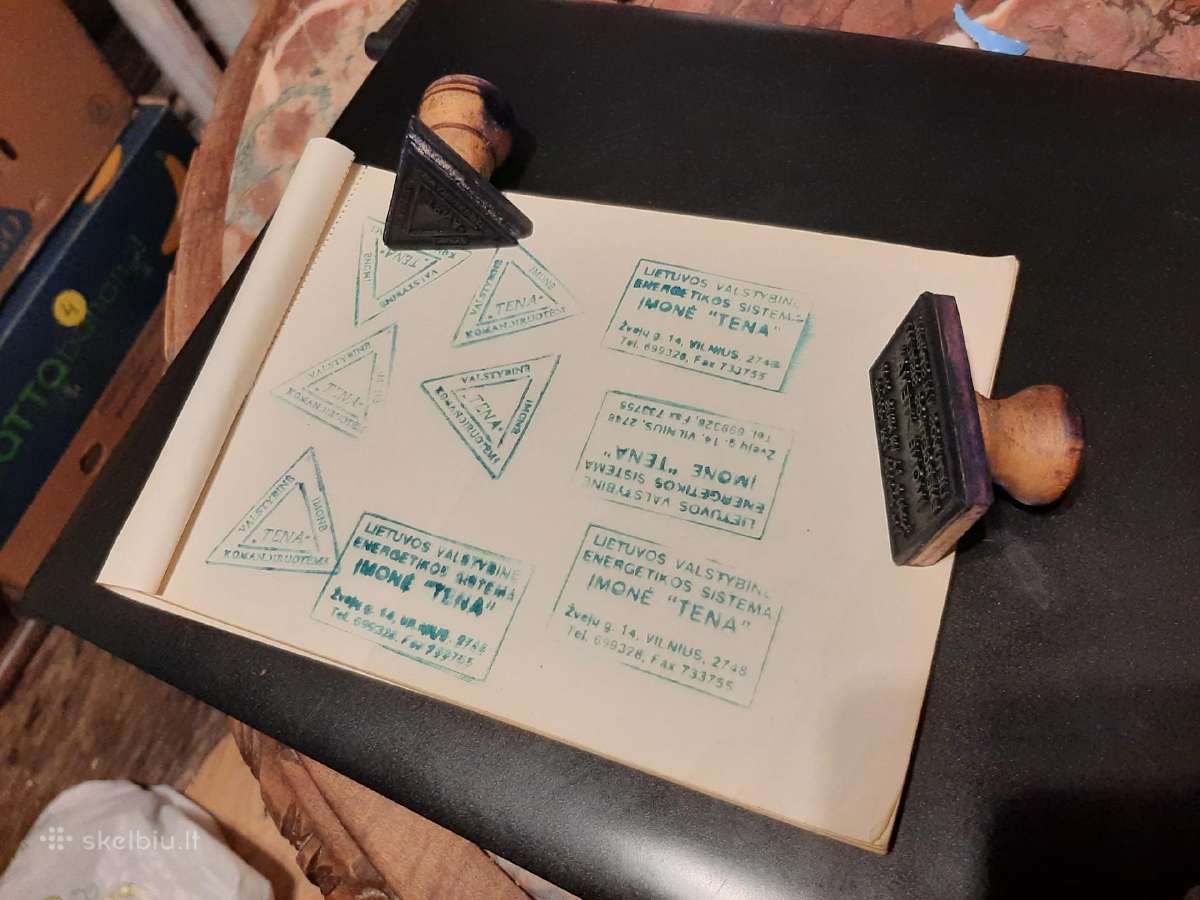 VALSTYBINĖ
ĮMONĖ
TENA
VALSTYBINĖ
ĮMONĖ
KOMANDIRUOTĖMS
TENA
VALSTYBINĖ
ĮMONĖ
KOMANDIRUOTĖMS
TENA
VALSTYBINĖ
ĮMONĖ
KOMANDIRUOTĖMS
TENA
LIETUVOS VALSTYBINĖ
ENERGETIKOS SISTEMA
ĮMONĖ "TENA"
Žvejų g. 14, VILNIUS, 2748
Tel. 699328, Fax 733755
LIETUVOS VALSTYBINĖ
ENERGETIKOS SISTEMA
ĮMONĖ "TENA"
Žvejų g. 14, VILNIUS, 2748
Tel. 699328, Fax 733755
LIETUVOS VALSTYBINĖ
ENERGETIKOS SISTEMA
ĮMONĖ "TENA"
Žvejų g. 14, VILNIUS, 2748
Tel. 699328, Fax 733755
LIETUVOS VALSTYBINĖ
ENERGETIKOS SISTEMA
ĮMONĖ "TENA"
Žvejų g. 14, VILNIUS, 2748
Tel. 699328, Fax 733755
4
skelbiu.lt